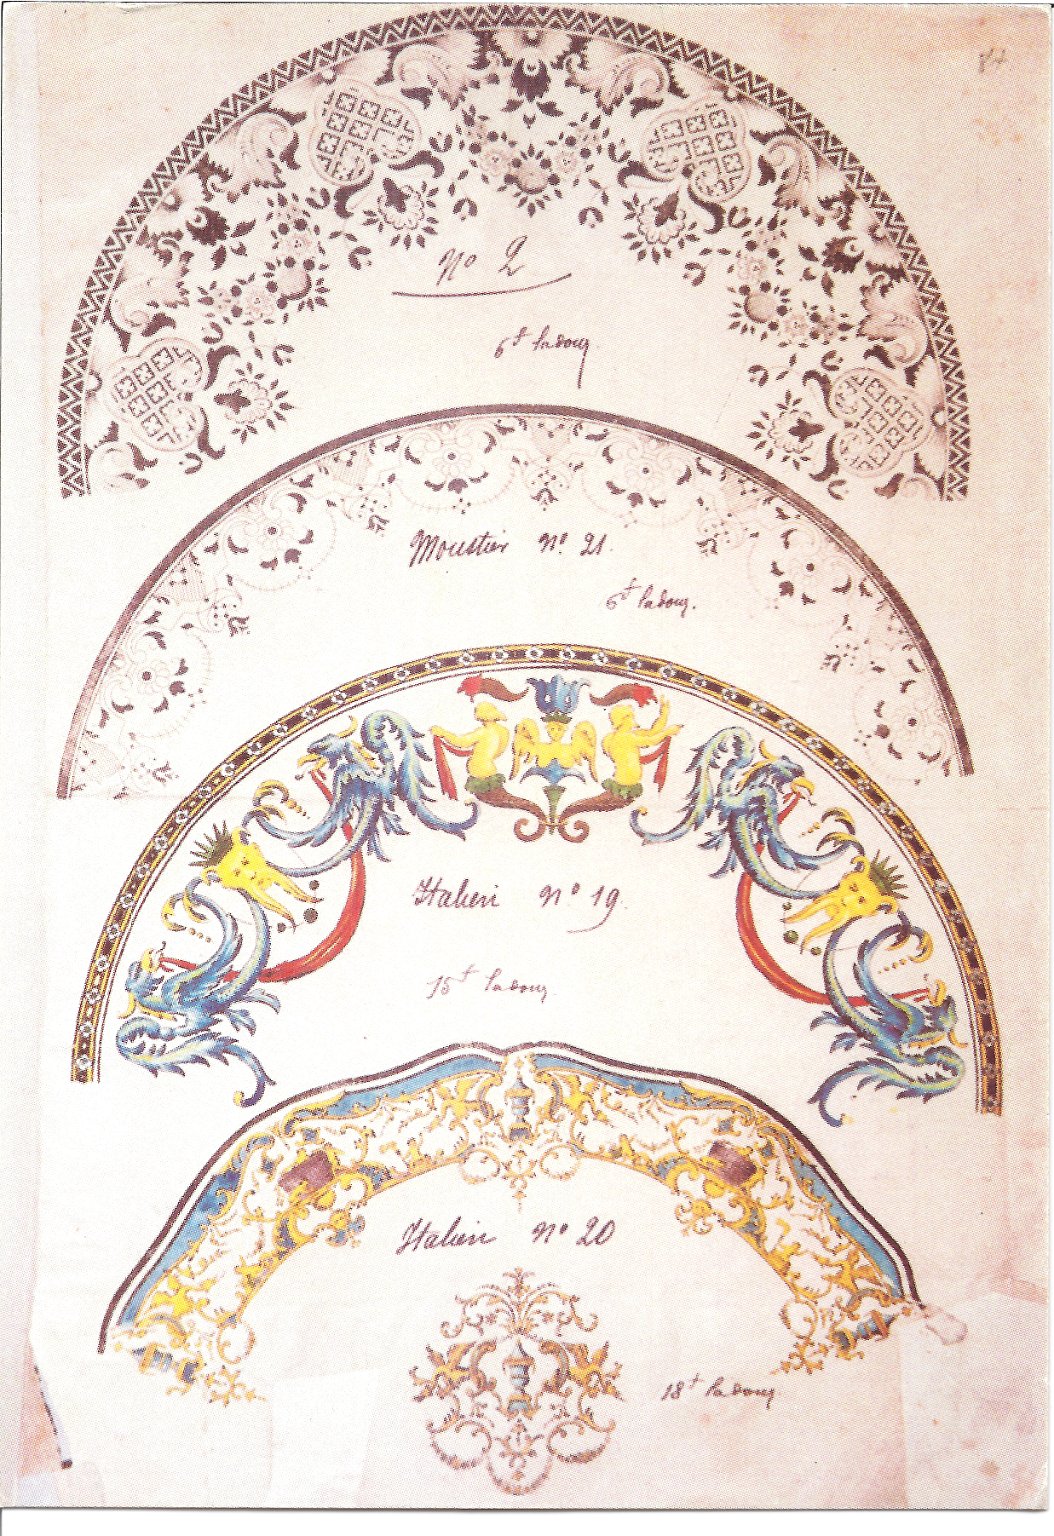 84
No 2
6f la douz.
Moustier No. 21.
6f la douz.
Italien no 19.
15f la douz.
Italien no 20
18f la douz.